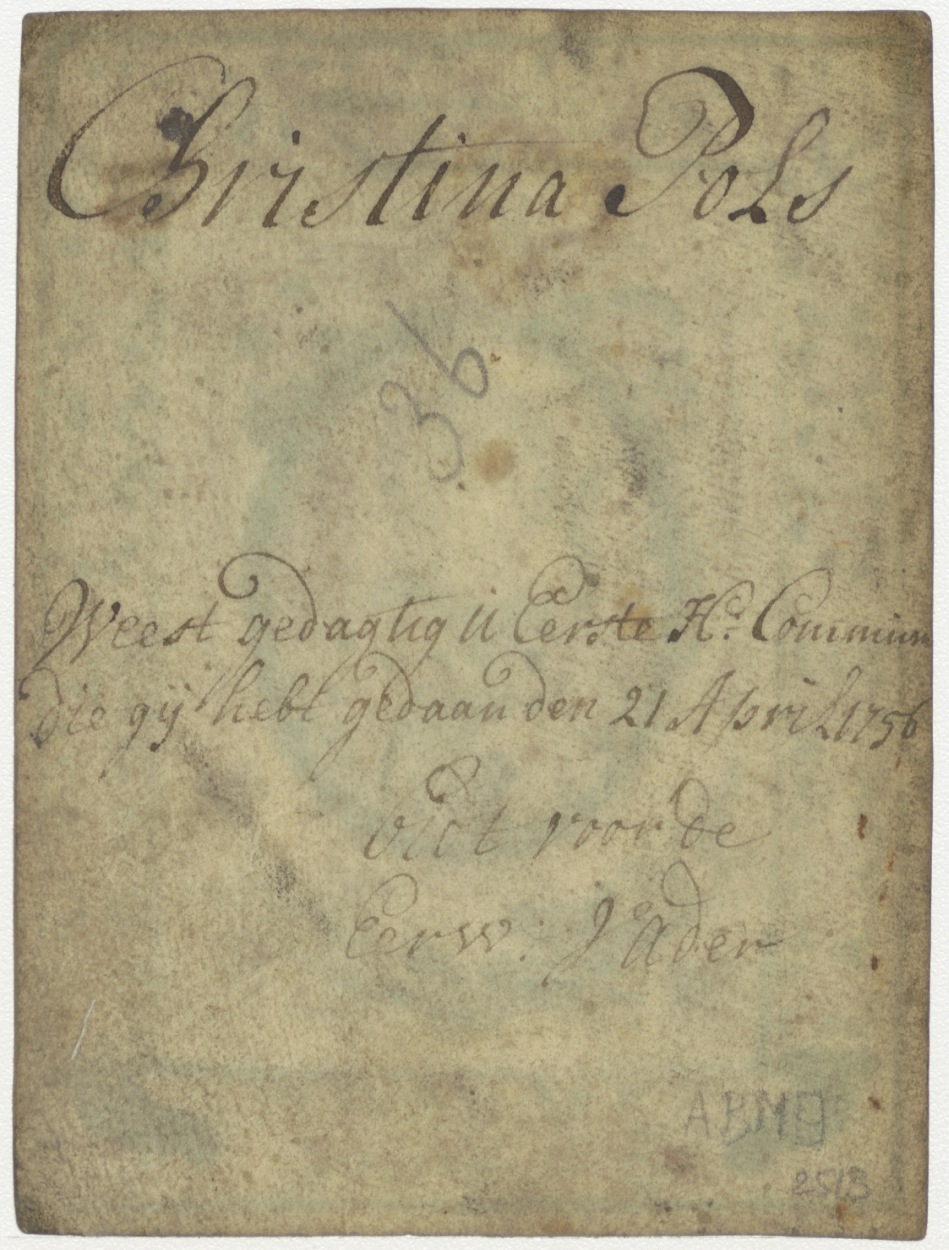 Christina Pols
36
Weest gedagtig ú Eerste H: Commun
die gij hebt gedaan den 21 April 1756
bidt voor de
Eerw. Vader
ABM